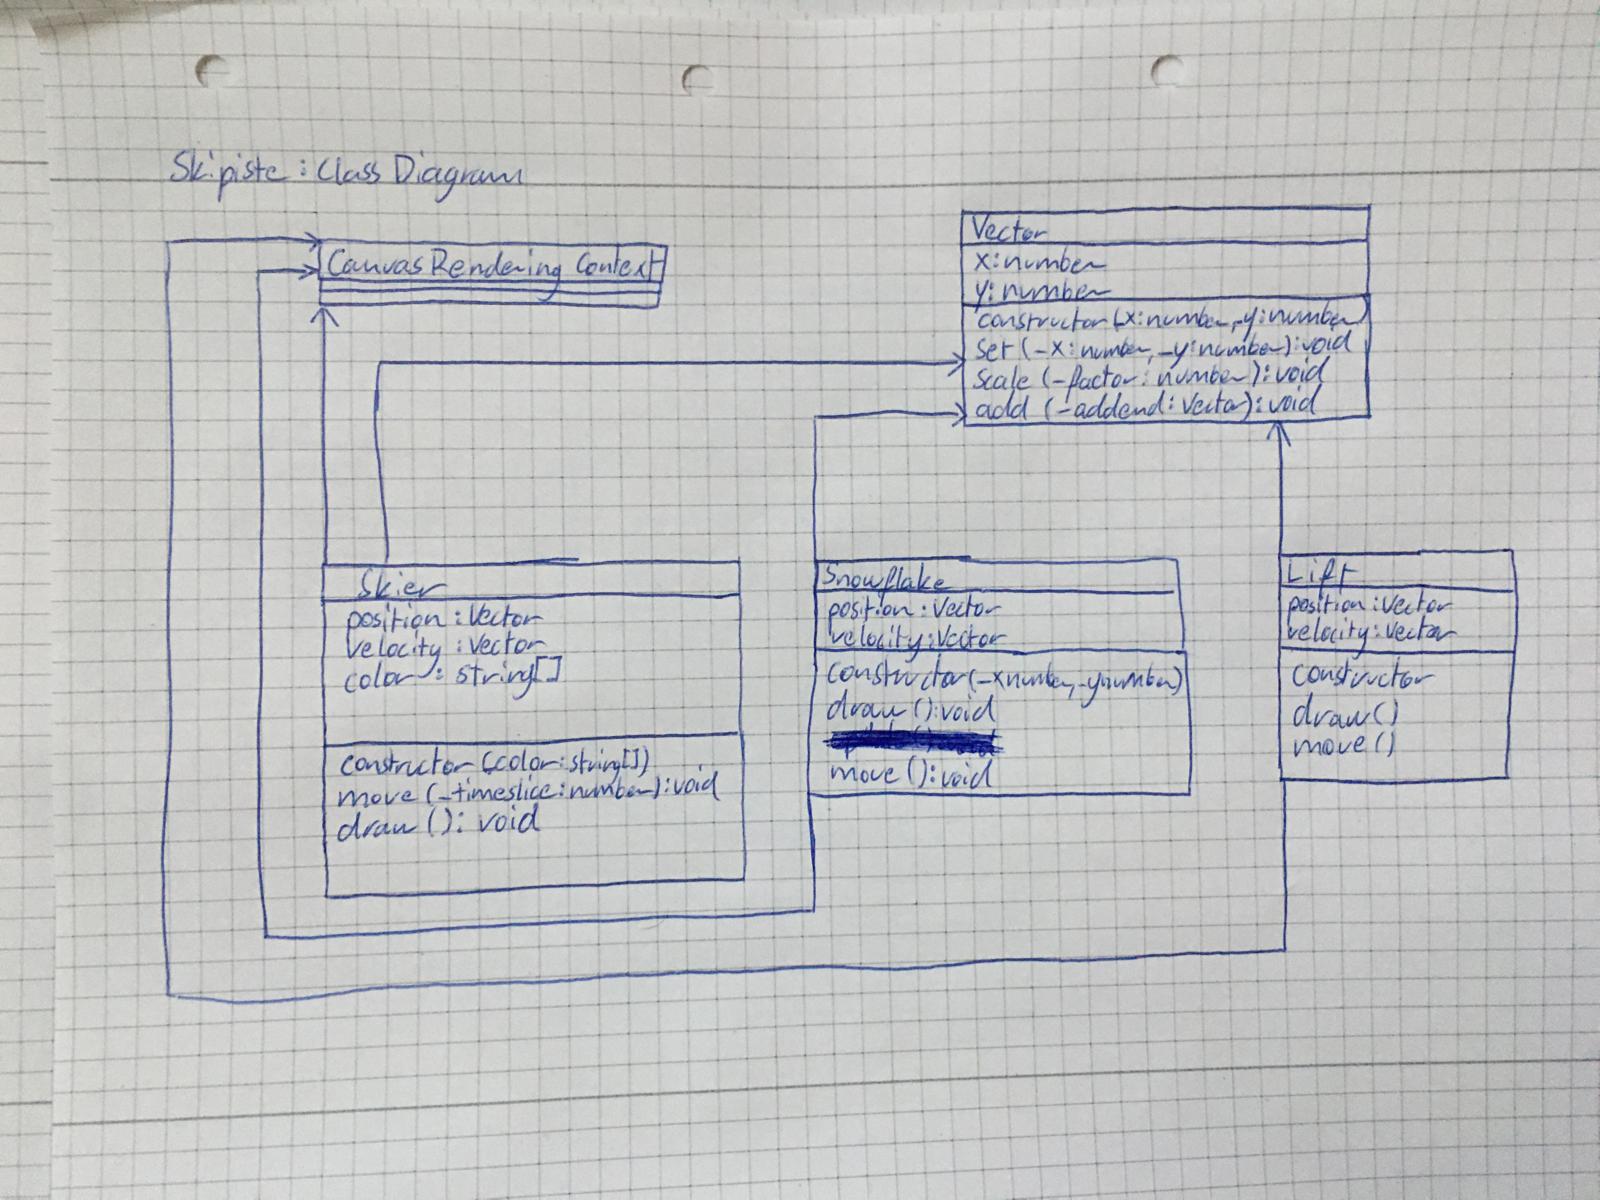 Skipiste : Class Diagram
Canvas Rendering Context
Vector
x: number
y: number
constructor(_x:number,_y:number)
set (_x:number,_y:number):void
scale (_factor: number): void
add (_addend: Vector): void
Skier
position : Vector
velocity : Vector
color : string[]
constructor (_color: string[])
move (_timeslice: number): void
draw (): void
Snowflake
position : Vector
velocity: Vector
constructor(_x number,_y number)
draw (): void
move (): void
Lift
position : Vector
velocity: Vector
constructor
draw ()
move ()